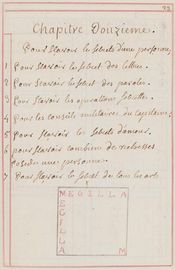 Chapitre Douzieme.
Pour sçavoir les secrets d'une personne.
1 Pour sçavoir le secret des lettres.
2 Pour sçavoir le secret des paroles.
3 Pour sçavoir les operations secrettes.
4 Pour les conseils militaires du capitaine.
5 Pour sçavoir le secret d'amour.
6 pour sçavoir combien de richesses
possede une personne.
7 Pour sçavoir le secret de tous les arts
MEGILLA
E
G
I
L
L
A M